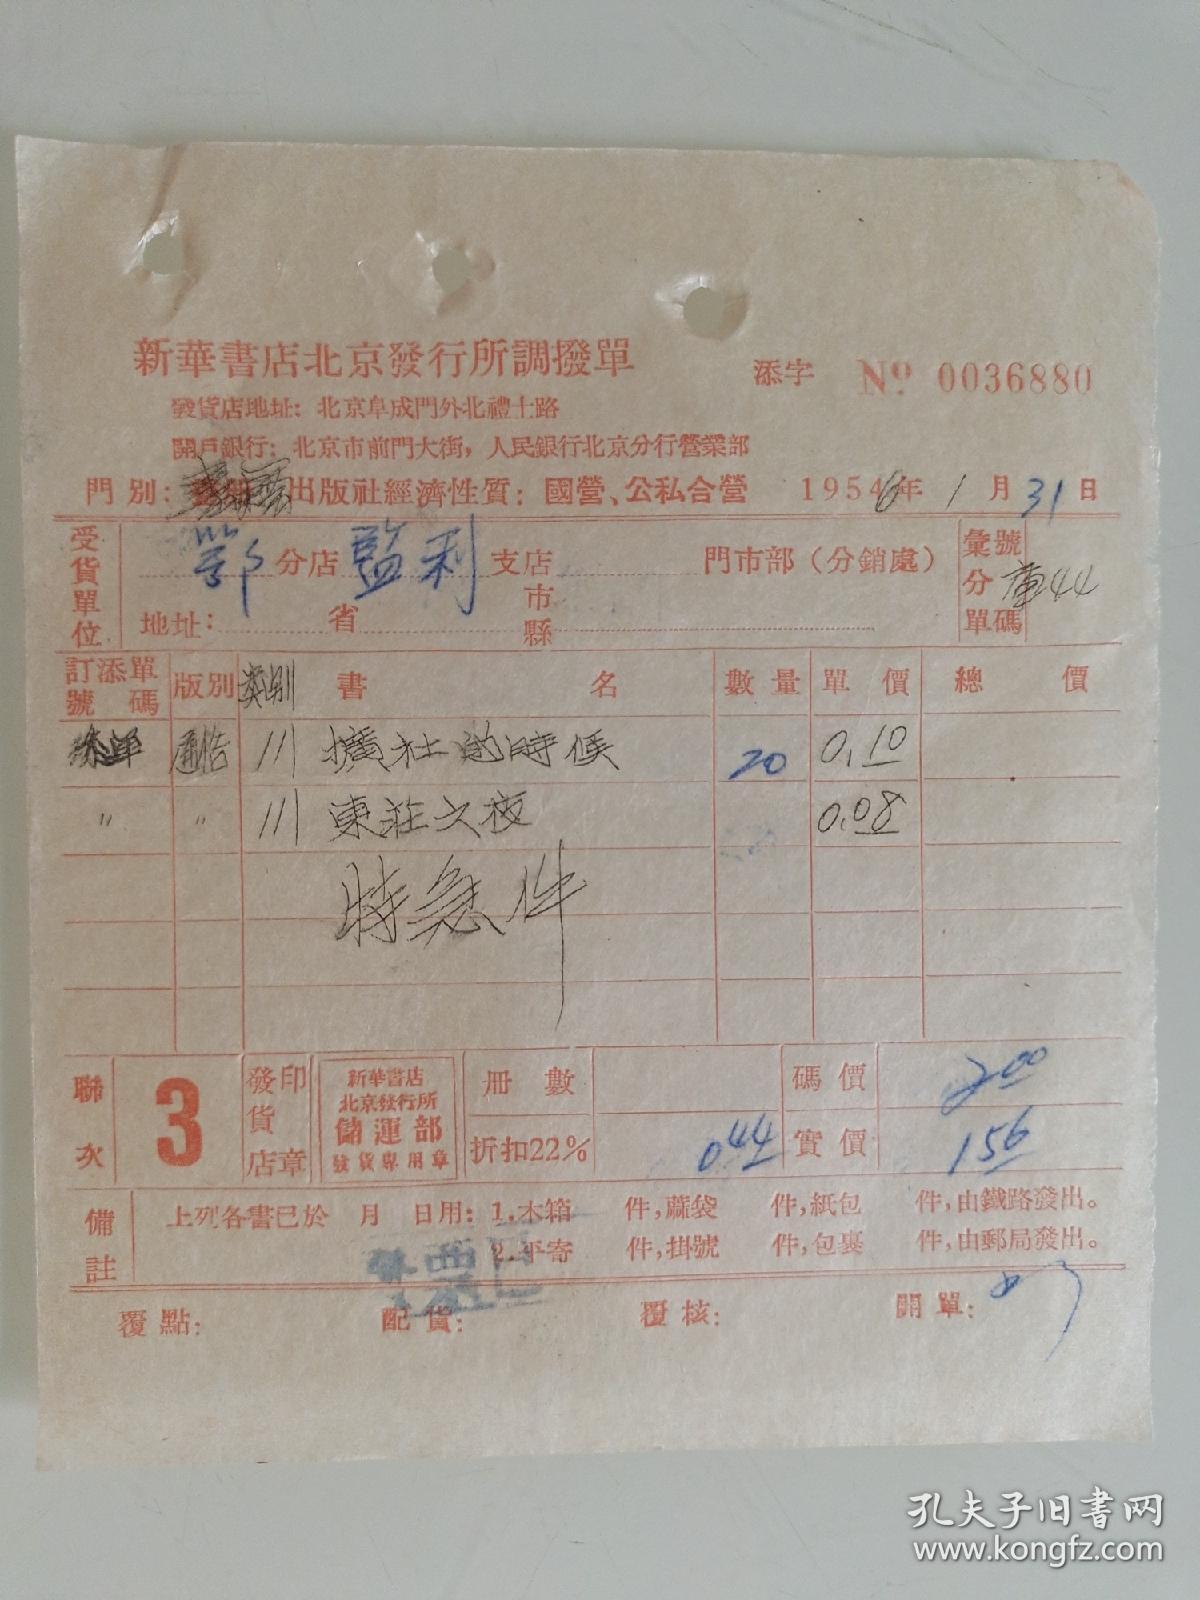 新華書店北京發行所調撥單
添字 Nº 0036880
發貨店地址：北京阜成門外北禮士路
開戶銀行：北京市前門大街，人民銀行北京分行營業部
門別： 出版社經濟性質：國營、公私合營 1954 6年 1月31日
受貨單位 鄂分店監利支店 門市部（分銷處） 彙號
地址： 省 市縣 分單碼 44
訂添單號碼 版別 类别 書名 數量 單價 總價
通俗 111 擴社的時候 20 0.10
〃 〃 111 東莊之夜 0.08
特急件
聯次 3 發貨店印章 新華書店北京發行所儲運部發貨專用章
冊數 碼價 2.00
折扣22% 0.44 實價 1.56
備註 上列各書已於 月 日用：1.木箱 件，蔴袋 件，紙包 件，由鐵路發出。
2.平寄 件，掛號 件，包裹 件，由郵局發出。
覆點： 配貨： 覆核： 開單：
孔夫子旧书网
www.kongfz.com